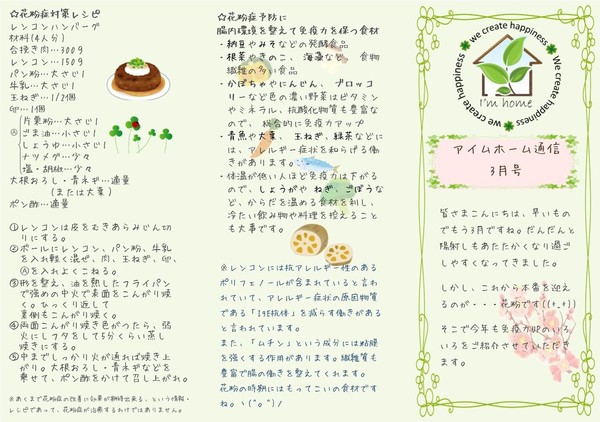 ☆花粉症対策レシピ
レンコンハンバーグ
材料(4人分)
合挽き肉…300g
レンコン…150g
パン粉…大さじ1
牛乳…大さじ1
玉ねぎ…1/2個
卵…1個
Ⓐ
片栗粉…大さじ1
ごま油…小さじ1
しょうゆ…小さじ1
ナツメグ…少々
塩・胡椒…少々
大根おろし・青ネギ…適量
(または大葉)
ポン酢…適量
①レンコンは皮をむきあらみじん切
りにする。
②ボールにレンコン、パン粉、牛乳
を入れ軽く混ぜ、肉、玉ねぎ、卵、
Ⓐを入れよくこねる。
③形を整え、油を熱したフライパン
で強めの中火で表面をこんがり焼
く。ひっくり返して
裏側もこんがり焼く。
④両面こんがり焼き色がつたら、弱
火にしフタをして5分くらい蒸し
焼きにする。
⑤中までしっかり火が通れば焼き上
がり。大根おろし・青ネギなどを
乗せて、ポン酢をかけて召し上がれ。
※あくまで花粉症の改善に効果が期待出来る、という情報・
レシピであって、花粉症が治療するわけではありません。
☆花粉症予防に
腸内環境を整えて免疫力を保つ食材
・納豆やみそなどの発酵食品
・根菜やきのこ、海藻など、 食物
繊維の多い食品
・かぼちゃやにんじん、ブロッコ
リーなど色の濃い野菜はビタミン
やミネラル、抗酸化物質も豊富な
ので、総合的に免疫力アップ
・青魚や大葉、玉ねぎ、緑茶などに
は、アレルギー症状を和らげる働
きがあります。
・体温が低い人ほど免疫力は下がる
ので、しょうがや ねぎ、ごぼうな
ど、からだを温める食材を利し、
冷たい飲み物や料理を控えること
も大事です。
※レンコンには抗アレルギー性のある
ポリフェノールが含まれていると言わ
れていて、アレルギー症状の原因物質
である「IgE抗体」を減らす働きがある
と言われています。
また、「ムチン」という成分には粘膜
を強くする作用があります。繊維質も
豊富で腸の働きを整えてくれます。
花粉の時期にはもってこいの食材です
ね。ヽ(^o^)丿
we create happiness
We create happiness
We create happiness
I'm home
アイムホーム通信
3月号
皆さまこんにちは、早いもの
でもう3月ですね。だんだんと
陽射しもあたたかくなり過ご
しやすくなってきました。
しかし、これから本番を迎え
るのが・・・花粉です((+_+))
そこで今年も免疫力UPのいろ
いろをご紹介させていただき
ます。